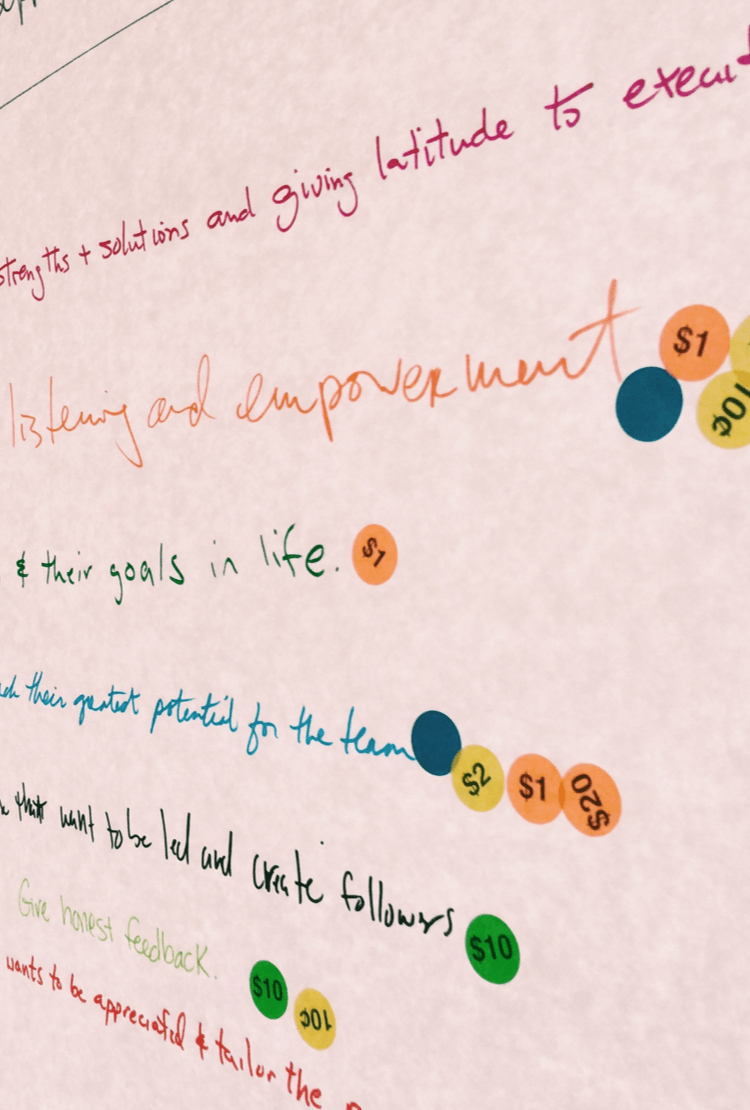 strengths + solutions and giving latitude to
listening and empowerment $1 10¢
& their goals in life. $1
their greatest potential for the team $2 $1 $20
that want to be led and create followers $10
Give honest feedback. $10 10¢
wants to be appreciated & tailor the